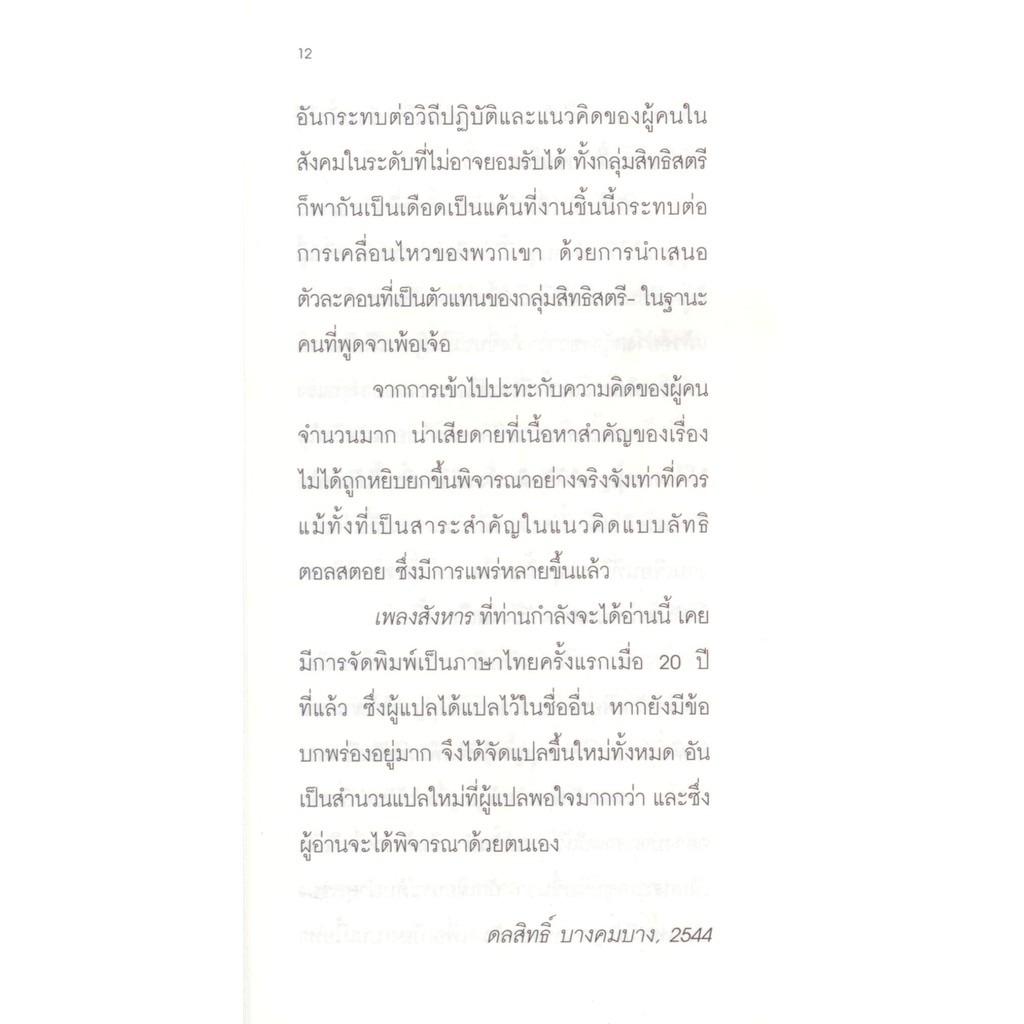 12
อันกระทบต่อวิถีปฏิบัติและแนวคิดของผู้คนใน
สังคมในระดับที่ไม่อาจยอมรับได้ ทั้งกลุ่มสิทธิสตรี
ก็พากันเป็นเดือดเป็นแค้นที่งานชิ้นนี้กระทบต่อ
การเคลื่อนไหวของพวกเขา ด้วยการนำเสนอ
ตัวละคอนที่เป็นตัวแทนของกลุ่มสิทธิสตรี- ในฐานะ
คนที่พูดจาเพ้อเจ้อ
จากการเข้าไปปะทะกับความคิดของผู้คน
จำนวนมาก น่าเสียดายที่เนื้อหาสำคัญของเรื่อง
ไม่ได้ถูกหยิบยกขึ้นพิจารณาอย่างจริงจังเท่าที่ควร
แม้ทั้งที่เป็นสาระสำคัญในแนวคิดแบบลัทธิ
ตอลสตอย ซึ่งมีการแพร่หลายขึ้นแล้ว
เพลงสังหาร ที่ท่านกำลังจะได้อ่านนี้ เคย
มีการจัดพิมพ์เป็นภาษาไทยครั้งแรกเมื่อ 20 ปี
ที่แล้ว ซึ่งผู้แปลได้แปลไว้ในชื่ออื่น หากยังมีข้อ
บกพร่องอยู่มาก จึงได้จัดแปลขึ้นใหม่ทั้งหมด อัน
เป็นสำนวนแปลใหม่ที่ผู้แปลพอใจมากกว่า และซึ่ง
ผู้อ่านจะได้พิจารณาด้วยตนเอง
ดลสิทธิ์ บางคมบาง, 2544